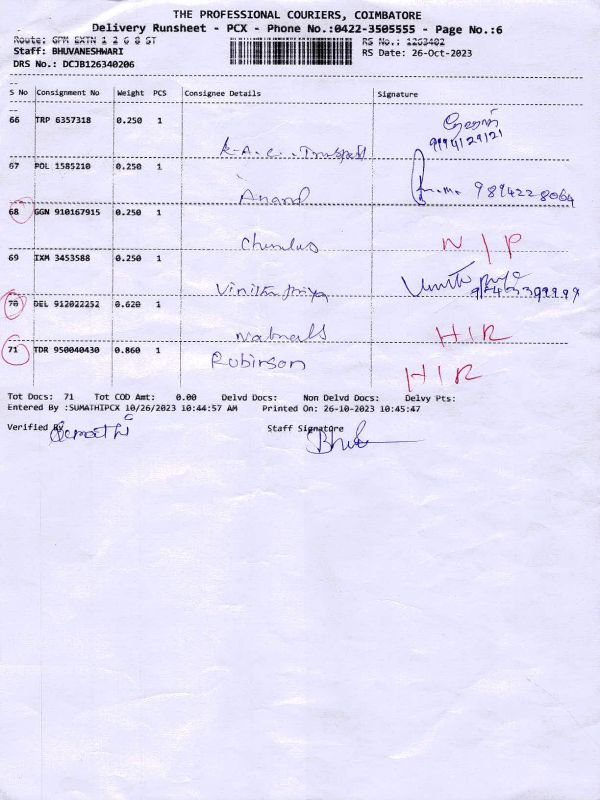 THE PROFESSIONAL COURIERS, COIMBATORE
Delivery Runsheet - PCX - Phone No.:0422-3505555 - Page No.:6
Route: GPM EXTN 1 2 6 8 ST RS No.: 1263402
Staff: BHUVANESHWARI RS Date: 26-Oct-2023
DRS No.: DCJB126340206
S No Consignment No Weight PCS Consignee Details Signature
66 TRP 6357318 0.250 1
9994129121
K.A.C.
67 POL 1585210 0.250 1
Anand 9894228064
68 GGN 910167915 0.250 1
N/P
69 IXM 3453588 0.250 1
70 DEL 912022252 0.620 1
H/R
71 TDR 950040430 0.860 1
Robinson
H/R
Tot Docs: 71 Tot COD Amt: 0.00 Delvd Docs: Non Delvd Docs: Delvy Pts:
Entered By :SUMATHIPCX 10/26/2023 10:44:57 AM Printed On: 26-10-2023 10:45:47
Verified By Staff Signature